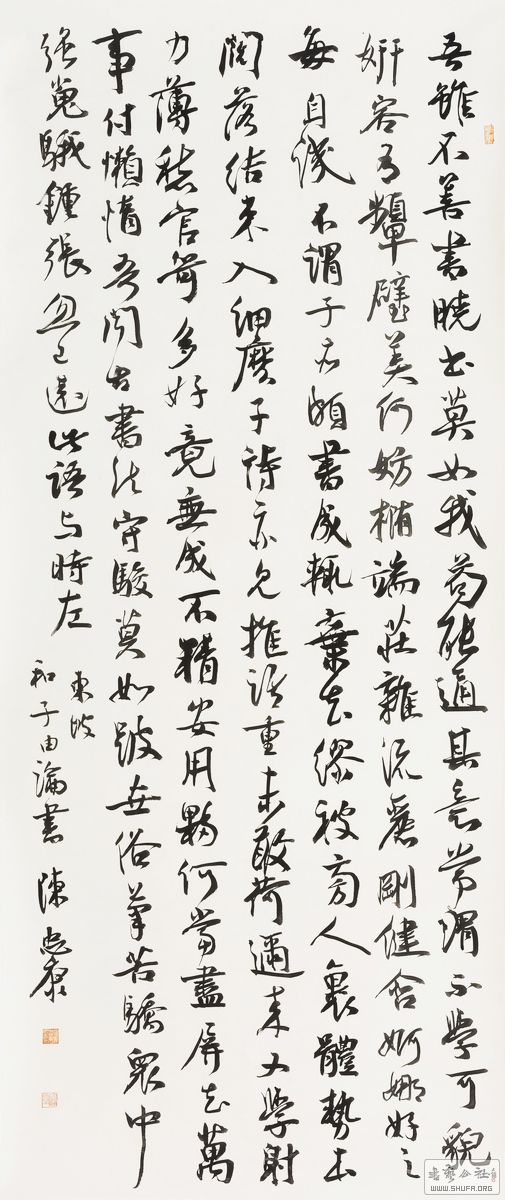 吾雖不善書曉書莫如我苟能通其意常謂不學可貌
妍容有顰璧美何妨橢端莊雜流麗剛健含婀娜好之
每自譏不謂子亦頗書成輒棄去繆被旁人裹體勢本
闊落結束入細麼子詩亦見推語重未敢荷邇來又學射
力薄愁官笴多好竟無成不精安用夥何當盡屏去萬
事付懶惰吾聞古書法守駿莫如跛世俗筆苦驕衆中
強嵬騀鍾張忽已遠此語与時左
東坡
和子由論書 陳忠康
書藝公社
WWW.SHUFA.ORG